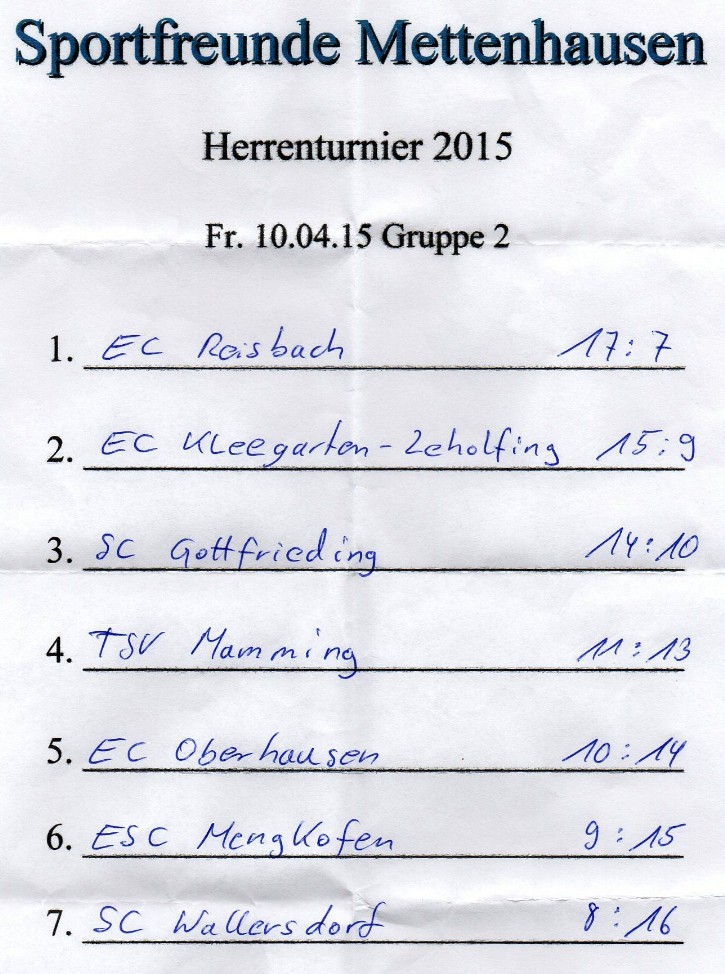 Sportfreunde Mettenhausen
Herrenturnier 2015
Fr. 10.04.15 Gruppe 2
1. EC Reisbach 17:7
2. EC Kleegarten-Zeholfing 15:9
3. SC Gottfrieding 14:10
4. TSV Mamming 11:13
5. EC Oberhausen 10:14
6. ESC Mengkofen 9:15
7. SC Wallersdorf 8:16